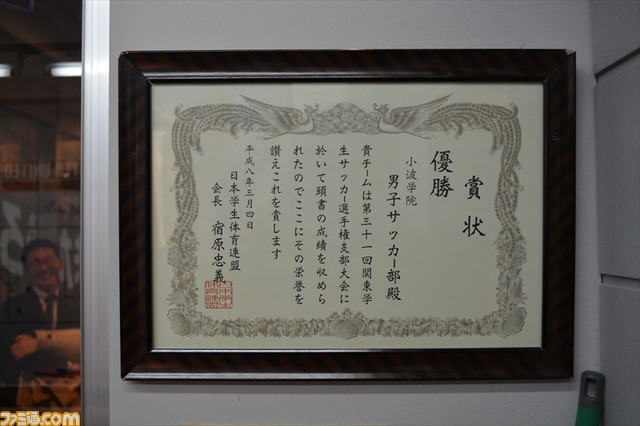 賞状
優勝
小波学院
男子サッカー部殿
貴チームは第三十一回関東学
生サッカー選手権支部大会に
於いて頭書の成績を収めら
れたのでここにその栄誉を
讃えこれを賞します
平成八年三月四日
日本学生体育連盟
会長 宿原忠義
ファミ通.com